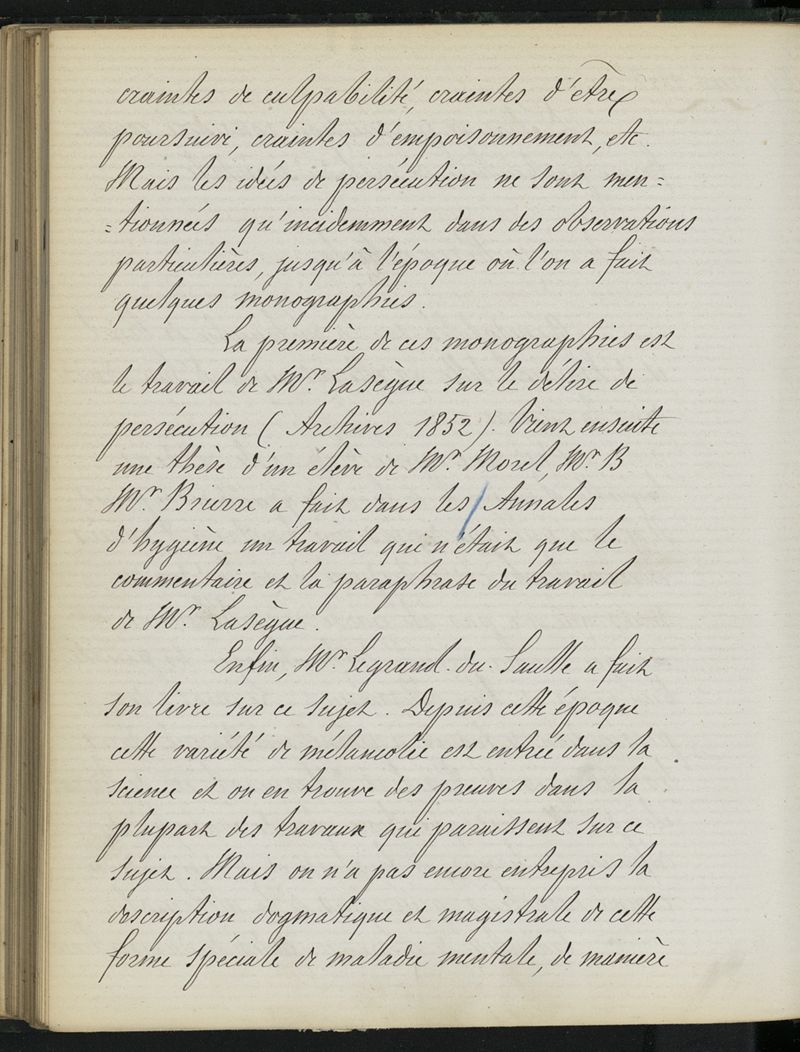 craintes de culpabilité, craintes d'être
poursuivi, craintes d'empoisonnement, etc.
Mais les idées de persécution ne sont men=
=tionnées qu'incidemment dans des observations
particulières, jusqu'à l'époque où l'on a fait
quelques monographies.
La première de ces monographies est
le travail de Mr. Lasègue sur le délire de
persécution (Archives 1852). Vient ensuite
une thèse d'un élève de Mr. Morel, Mr. B
Mr. Brierre a fait dans les / Annales
d'hygiène un travail qui n'était que le
commentaire et la paraphrase du travail
de Mr. Lasègue.
Enfin, Mr. Legrand du Saulle a fait
son livre sur ce sujet. Depuis cette époque
cette variété de mélancolie est entrée dans la
science et on en trouve des preuves dans la
plupart des travaux qui paraissent sur ce
sujet. Mais on n'a pas encore entrepris la
description dogmatique et magistrale de cette
forme spéciale de maladie mentale, de manière